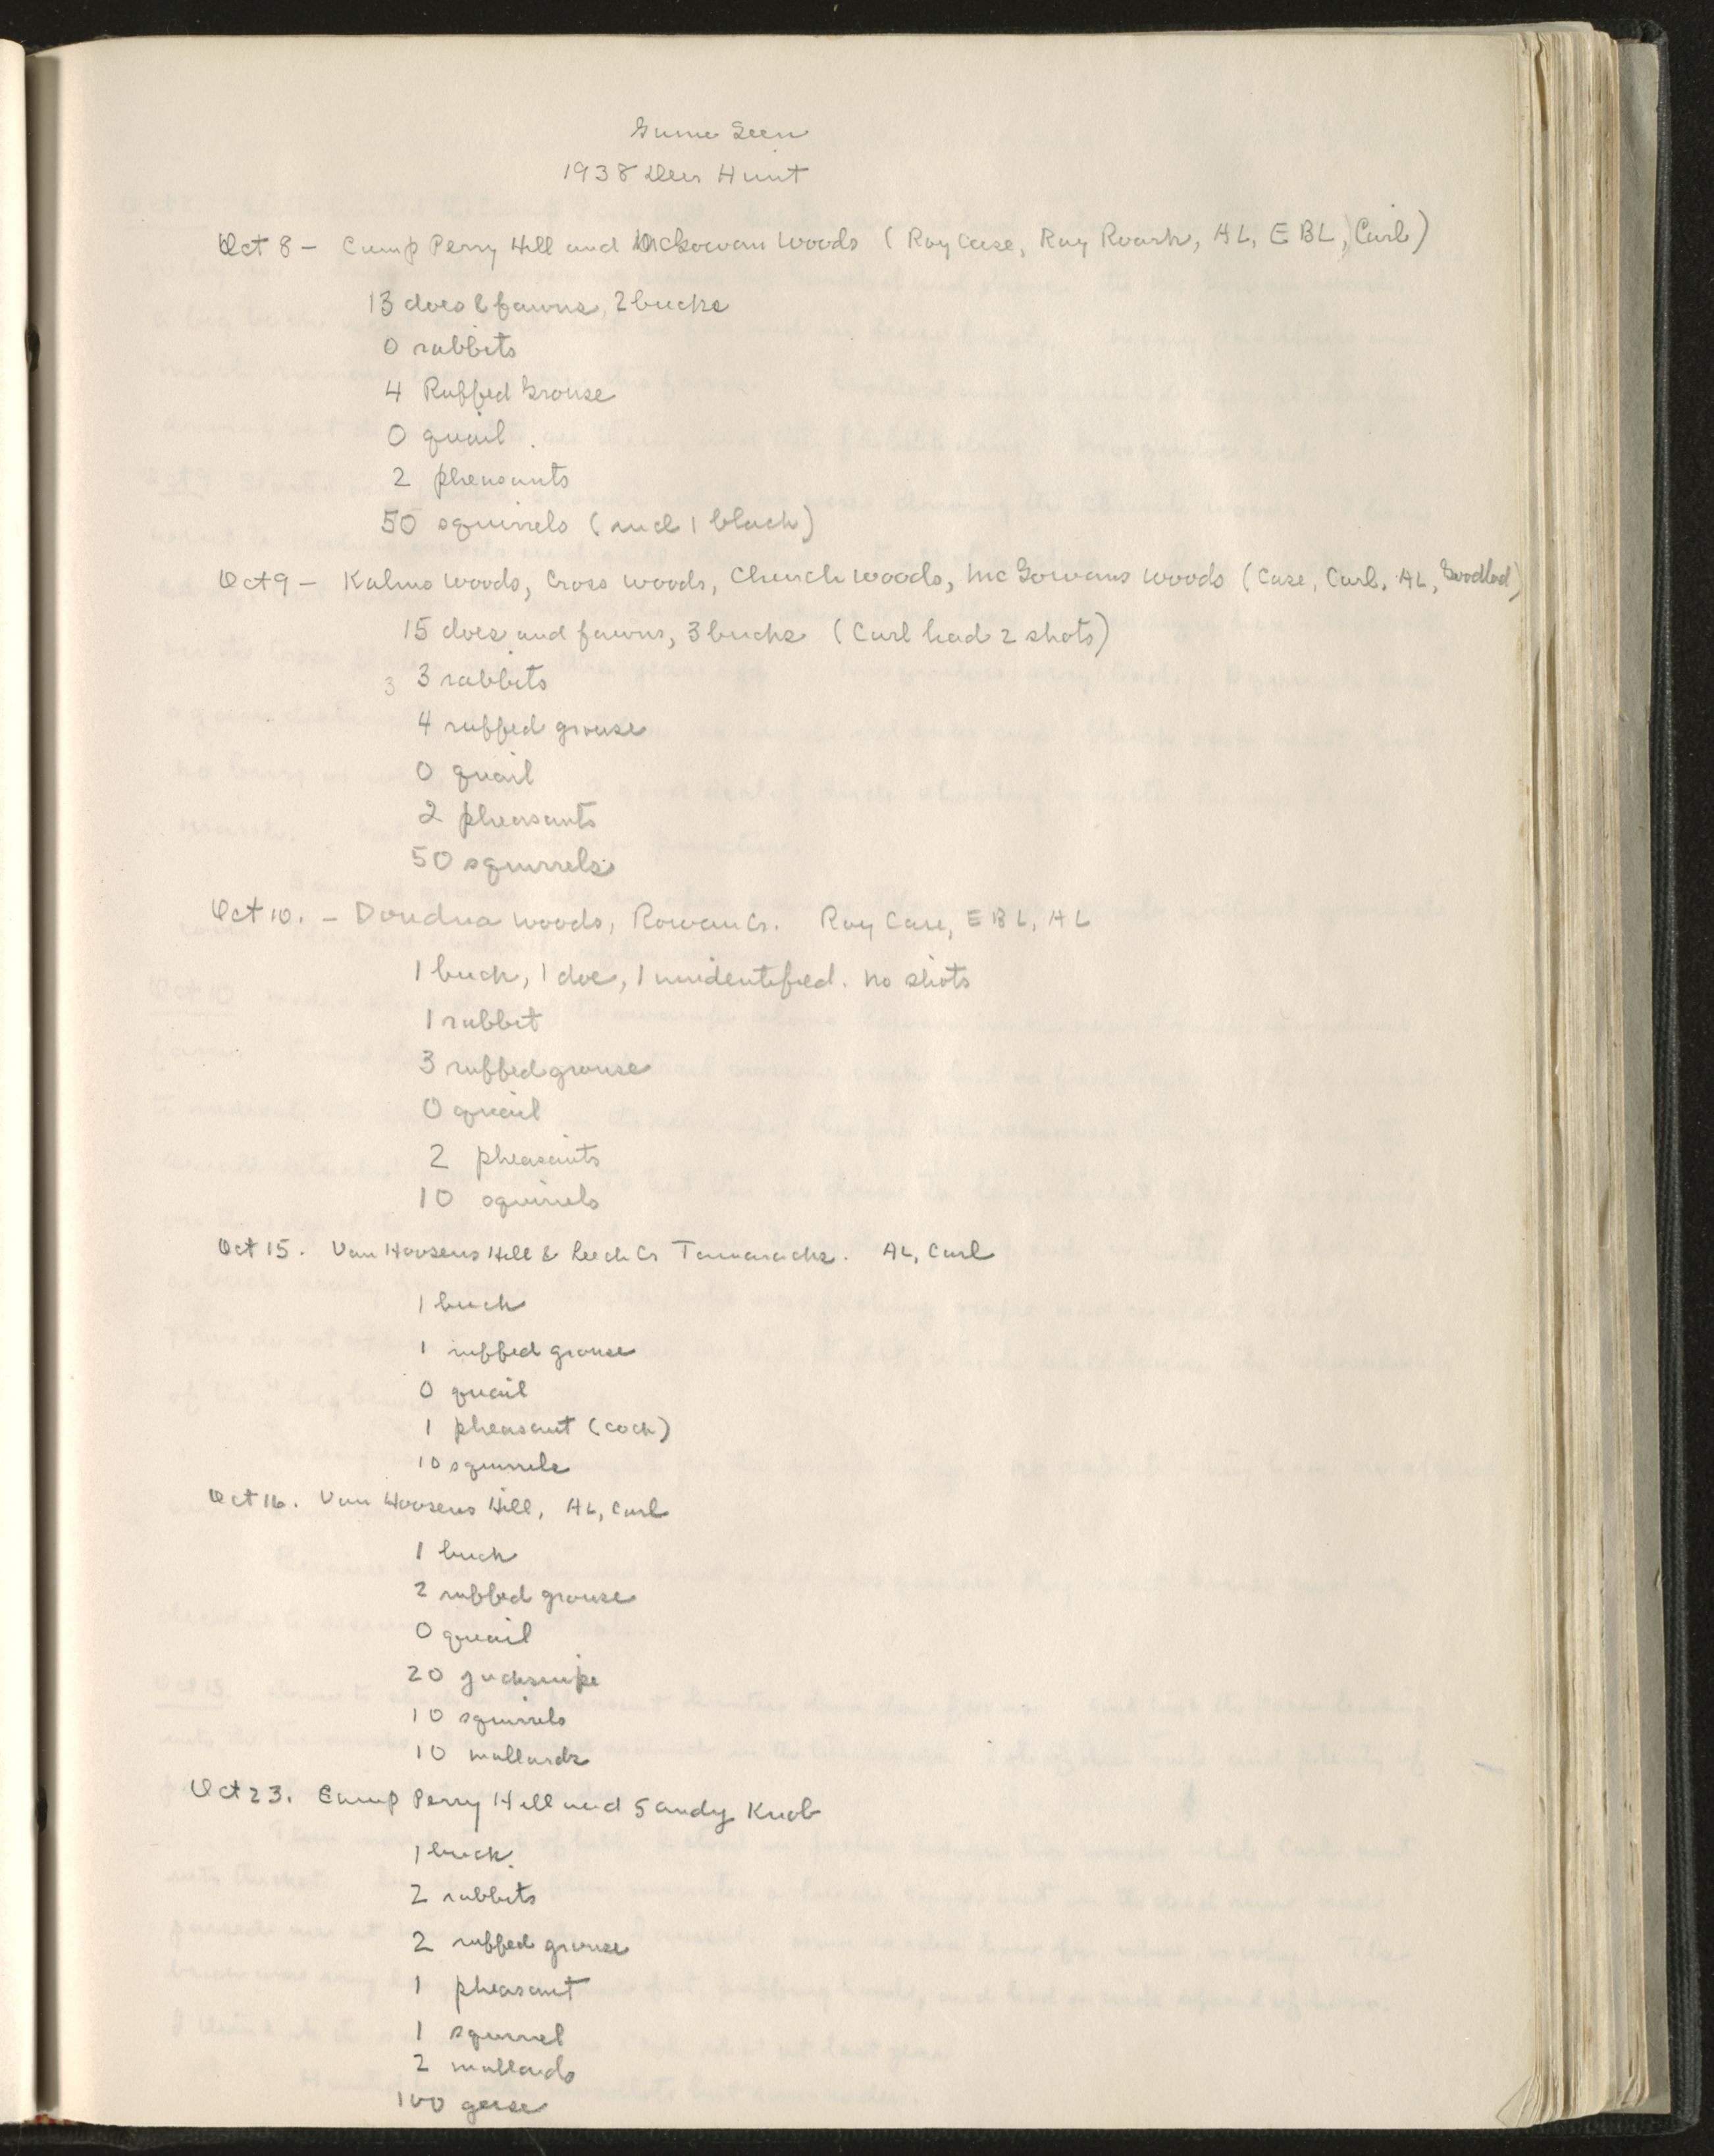 Game Seen
1938 Deer Hunt
Oct 8 - Camp Perry Hill and McGowan Woods (Ray Case, Ray Roark, AL, EBL, Carl)
13 does & fawns, 2 bucks
0 rabbits
4 Ruffed Grouse
0 quail
2 pheasants
50 squirrels (and 1 black)
Oct 9 - Kalms woods, Cross woods, Church woods, McGowans woods (Case, Carl, AL,
15 does and fawns, 3 bucks (Carl had 2 shots)
3 3 rabbits
4 ruffed grouse
0 quail
2 pheasants
50 squirrels
Oct 10. - woods, Rowan Cr. Ray Case, EBL, AL
1 buck, 1 doe, 1 unidentified. no shots
1 rabbit
3 ruffed grouse
0 quail
2 pheasants
10 squirrels
Oct 15. Van Hoosens Hill & Leech Cr Tamaracks. AL, Carl
1 buck
1 ruffed grouse
0 quail
1 pheasant (cock)
10 squirrels
Oct 16. Van Hoosens Hill, AL, Carl
1 buck
2 ruffed grouse
0 quail
20 jacksnipe
10 squirrels
10 mallards
Oct 23. Camp Perry Hill and Sandy Knob
1 buck.
2 rabbits
2 ruffed grouse
1 pheasant
1 squirrel
2 mallards
100 geese